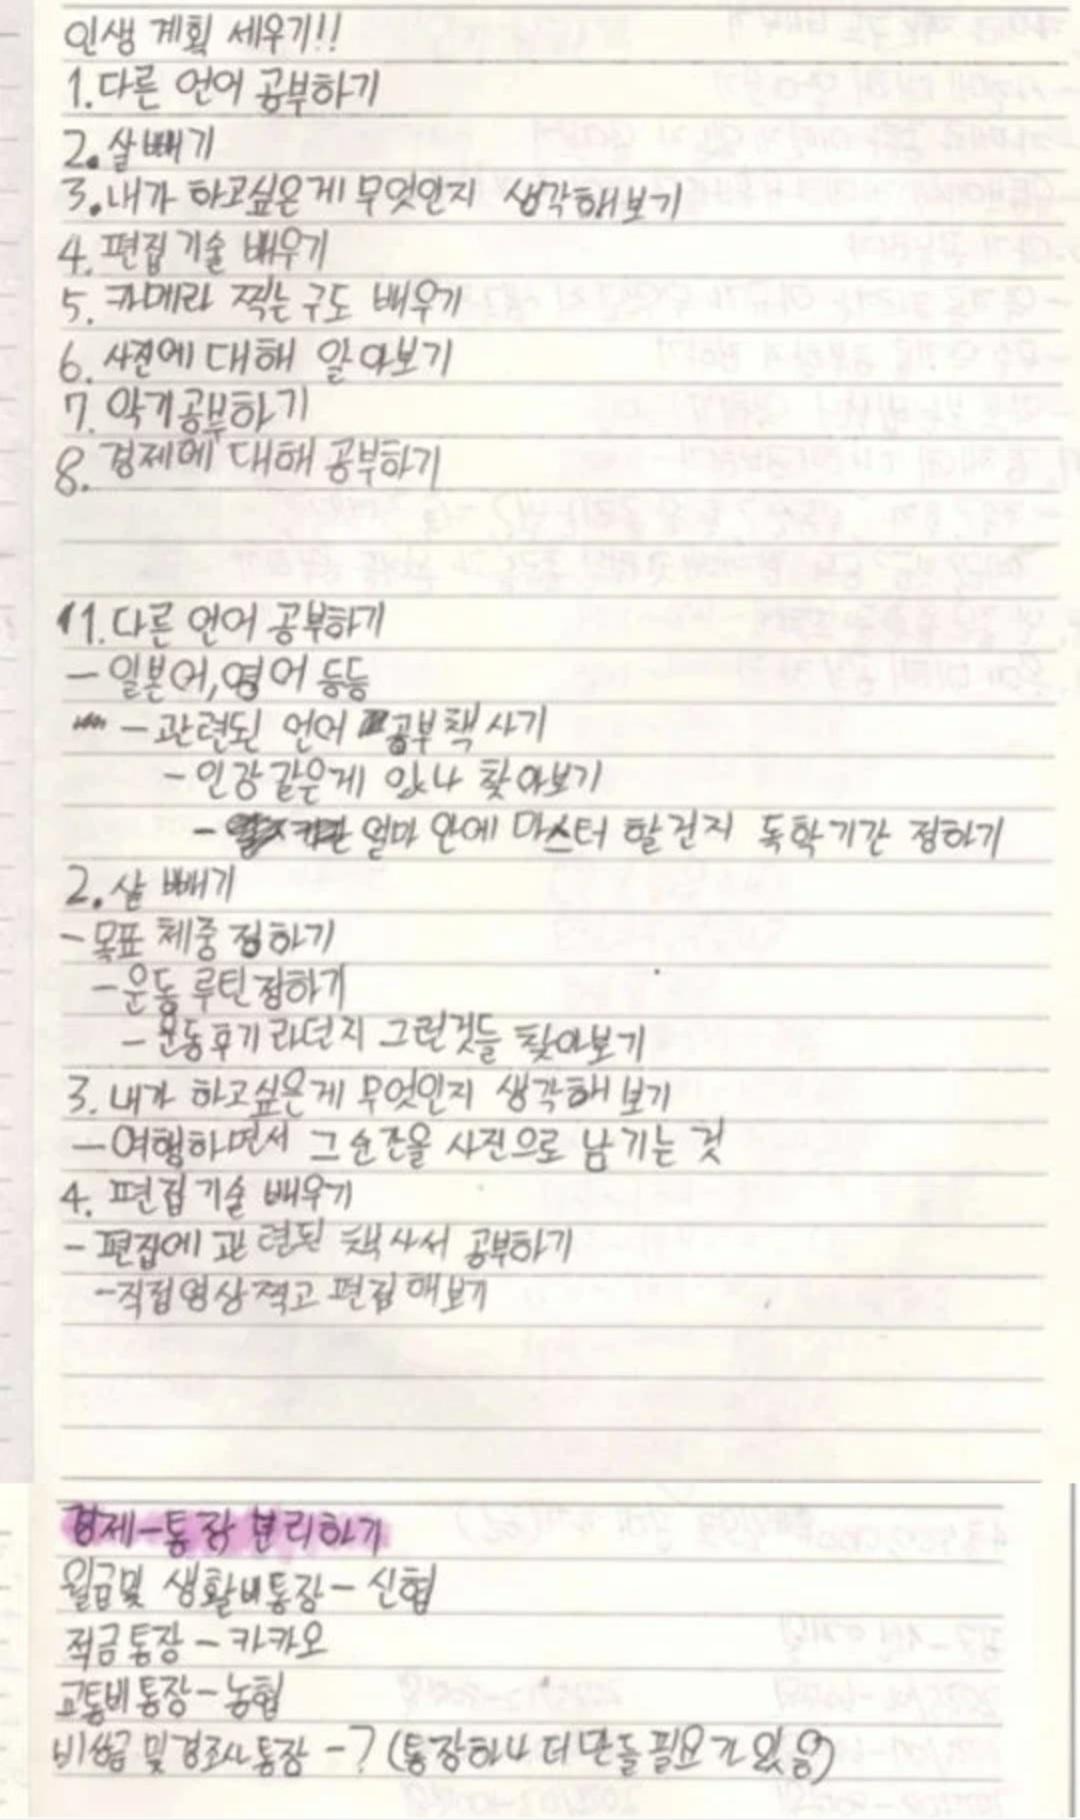 인생 계획 세우기!!
1. 다른 언어 공부하기
2. 살 빼기
3. 내가 하고싶은게 무엇인지 생각해보기
4. 편집 기술 배우기
5. 카메라 찍는 구도 배우기
6. 사진에 대해 알아보기
7. 악기공부하기
8. 경제에 대해 공부하기
1. 다른 언어 공부하기
- 일본어, 영어 등등
- 관련된 언어 공부책 사기
- 인강같은게 있나 찾아보기
- 얼마 안에 마스터 할건지 독학기간 정하기
2. 살 빼기
- 목표 체중 정하기
- 운동 루틴정하기
- 운동후기라던지 그런것들 찾아보기
3. 내가 하고싶은게 무엇인지 생각해보기
- 여행하면서 그 순간을 사진으로 남기는 것
4. 편집 기술 배우기
- 편집에 관련된 책 사서 공부하기
- 직접영상찍고 편집해보기
경제-통장 분리하기
월급및 생활비통장 - 신협
적금통장 - 카카오
교통비통장 - 농협
비상금 및 경조사통장 - ? (통장하나 더 만들 필요가 있음)